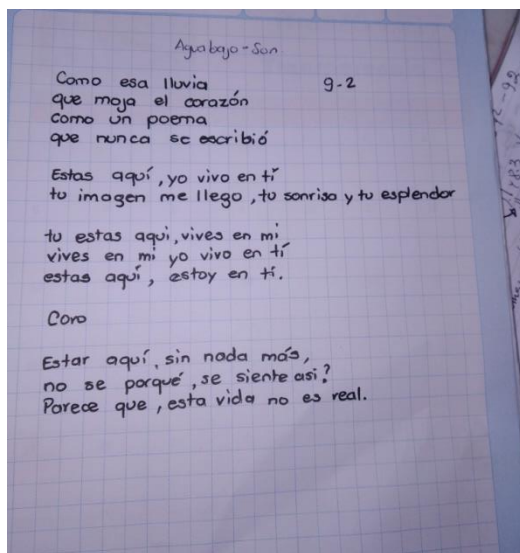 Agua bajo - Son
Como esa lluvia 9-2
que moja el corazón
Como un poema
que nunca se escribió
Estas aquí, yo vivo en tí
tu imagen me llego, tu sonrisa y tu esplendor
tu estas aqui, vives en mi
vives en mi yo vivo en tí
estas aquí, estoy en tí.
Coro
Estar aquí, sin nada más,
no se porqué, se siente asi?
Parece que, esta vida no es real.